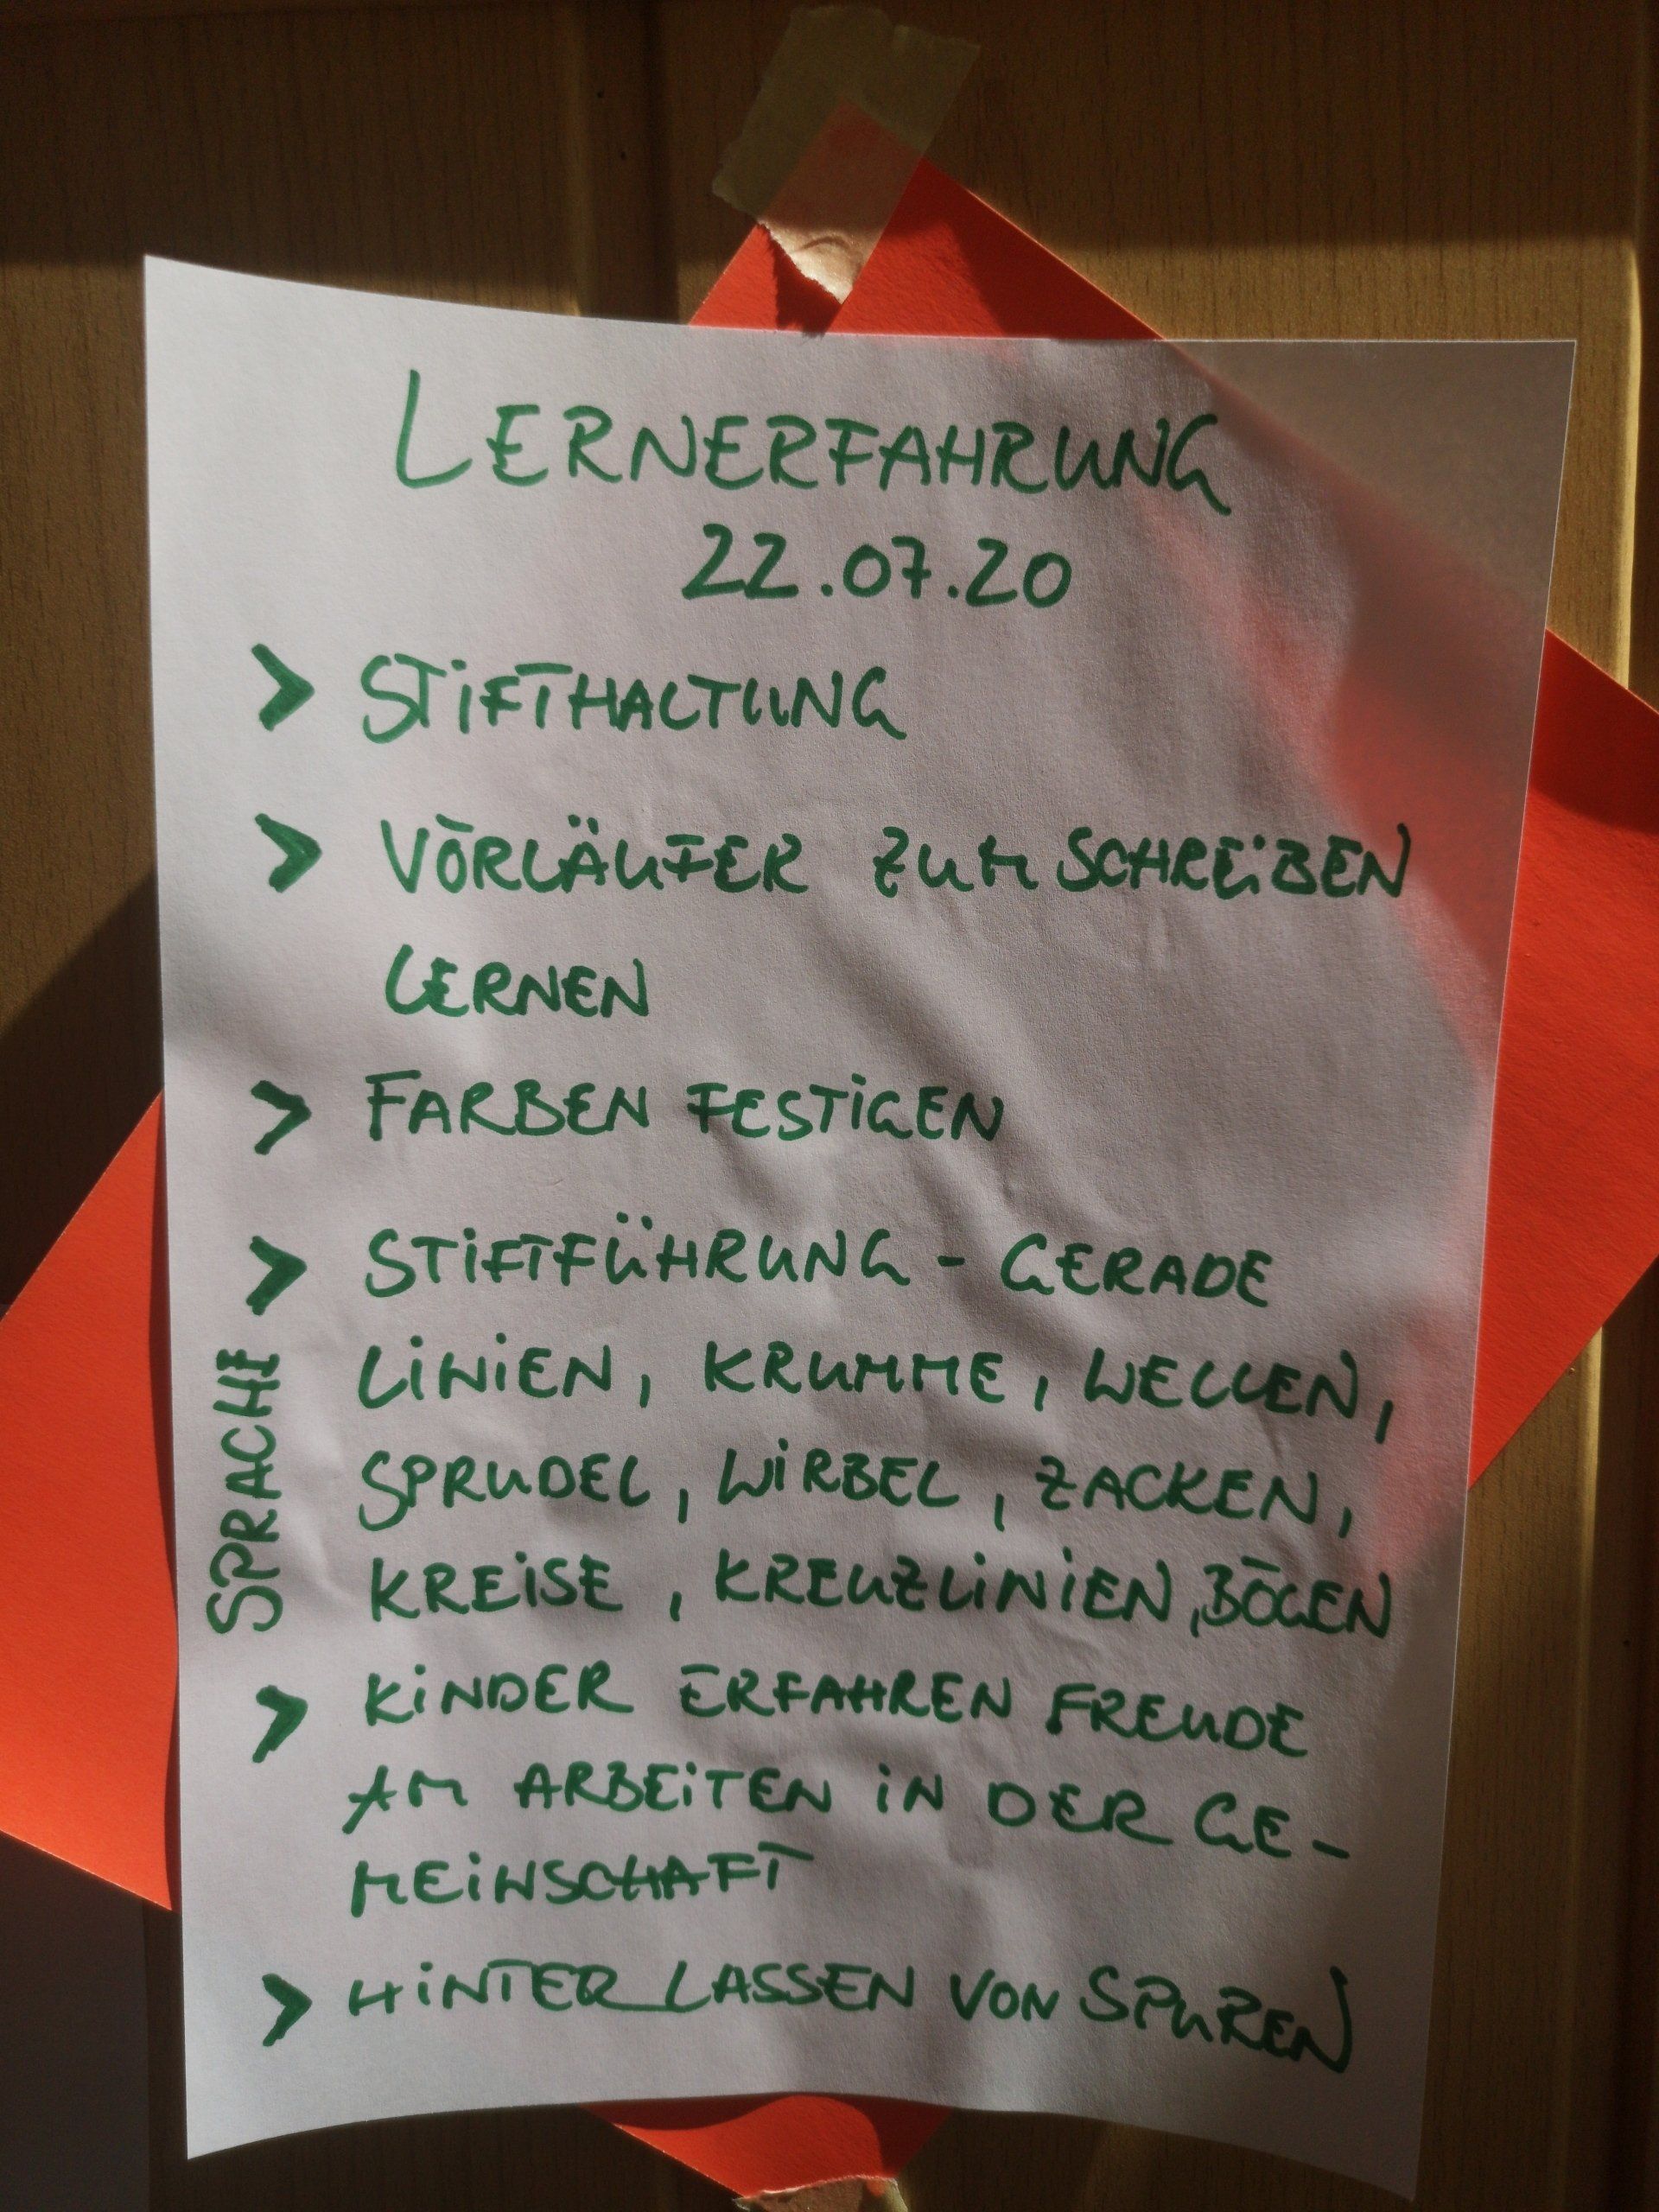 LERNERFAHRUNG
22.07.20
> STIFTHALTUNG
> VORLÄUFER ZUM SCHREIBEN
LERNEN
> FARBEN FESTIGEN
> STIFTFÜHRUNG - GERADE
LINIEN, KRUMME, WELLEN,
SPRUDEL, WIRBEL, ZACKEN,
KREISE, KREUZLINIEN, BÖGEN
SPRACHE
> KINDER ERFAHREN FREUDE
AM ARBEITEN IN DER GE-
MEINSCHAFT
> HINTERLASSEN VON SPUREN